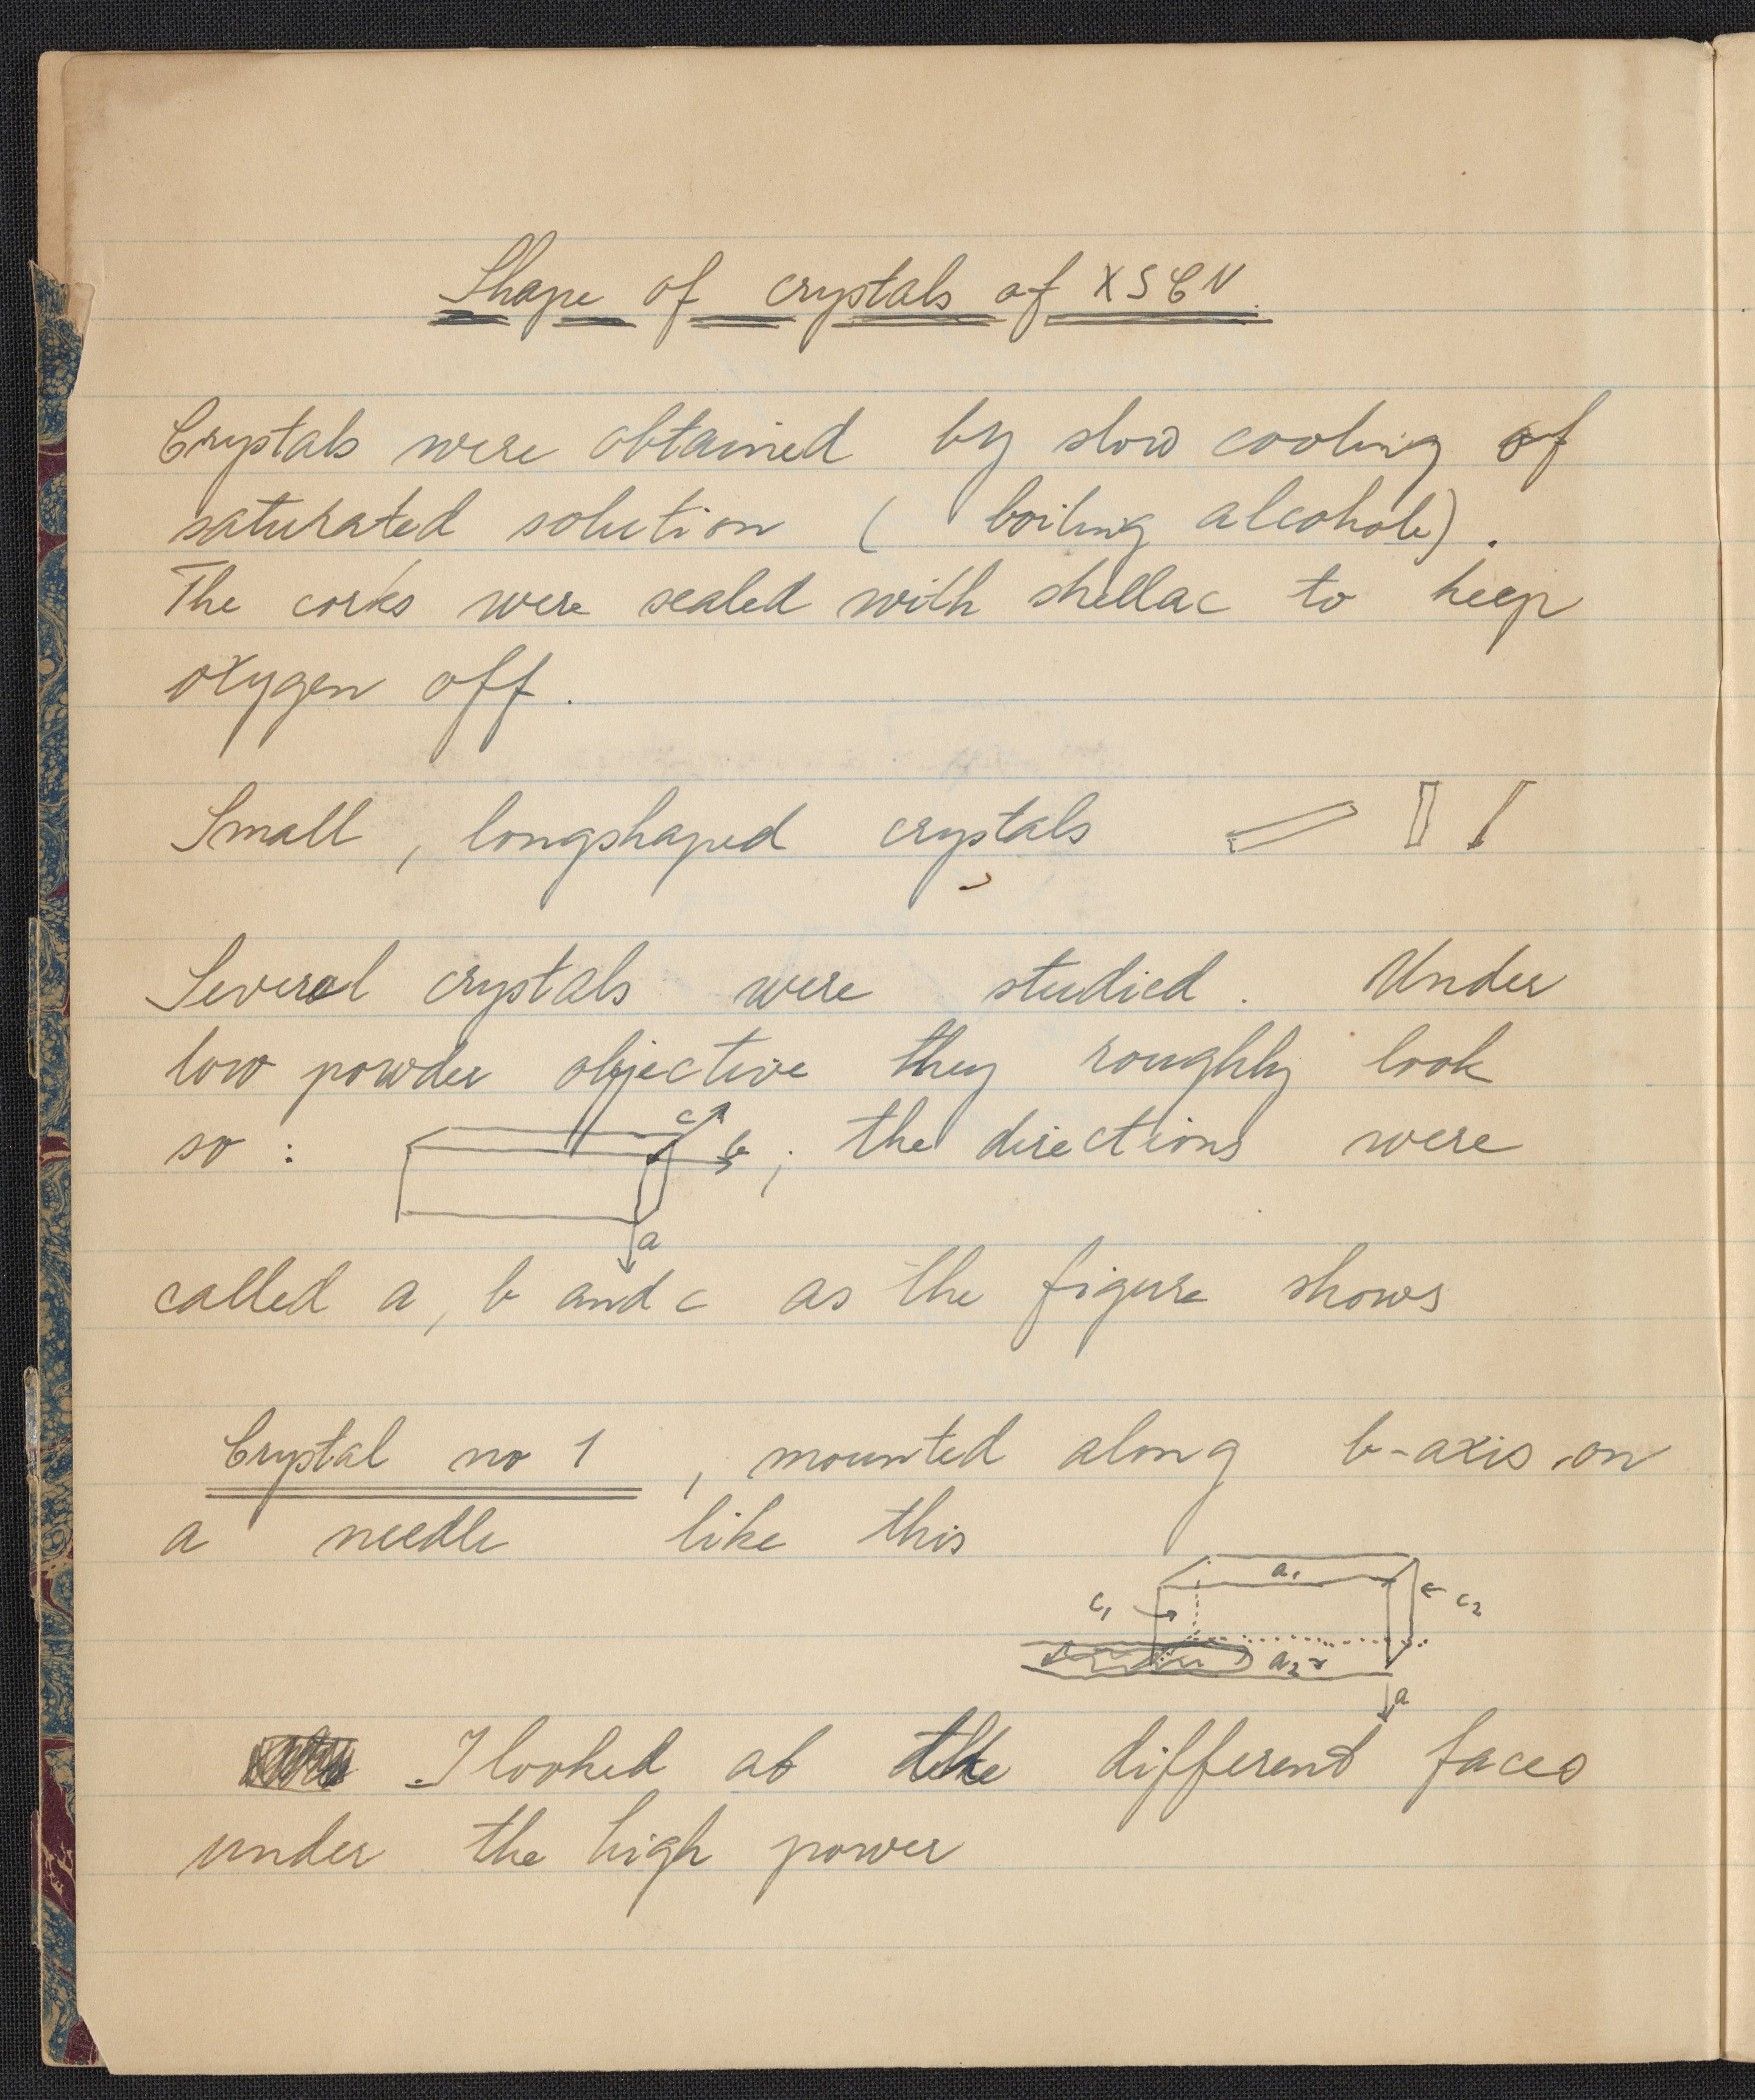 Shape of crystals of KSCN.
Crystals were obtained by slow cooling of
saturated solution ( boiling alcohole) .
The corks were sealed with shellac to keep
oxygen off .
Small , longshaped crystals
Several crystals were studied . Under
low powder objective they roughly look
c
so : b ; the directions were
a
called a, b and c as the figure shows
Crystal no 1 , mounted along b-axis on
a needle like this
a₁
c₁ c₂
a₂
a
I looked at the different faces
under the high power